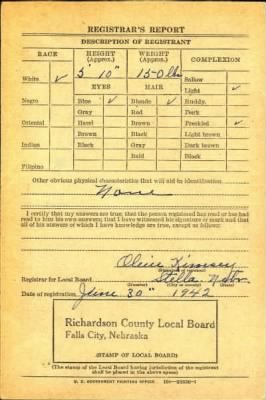 REGISTRAR'S REPORT
DESCRIPTION OF REGISTRANT
RACE HEIGHT (Approx.) WEIGHT (Approx.) COMPLEXION
5' 10" 150 lbs Sallow
White ✓ EYES HAIR Light ✓
Negro Blue ✓ Blonde ✓ Ruddy
Gray Red Dark
Oriental Hazel Brown Freckled ✓
Brown Black Light brown
Indian Black Gray Dark brown
Bald Black
Filipino
Other obvious physical characteristics that will aid in identification
None
I certify that my answers are true; that the person registered has read or has had
read to him his own answers; that I have witnessed his signature or mark and that
all of his answers of which I have knowledge are true, except as follows:
Olive Kimsey
(Signature of registrar)
Registrar for Local Board Stella Nebr.
(Number) (City or county) (State)
Date of registration June 30" 1942
Richardson County Local Board
Falls City, Nebraska
(STAMP OF LOCAL BOARD)
(The stamp of the Local Board having jurisdiction of the registrant
shall be placed in the above space)
U. S. GOVERNMENT PRINTING OFFICE